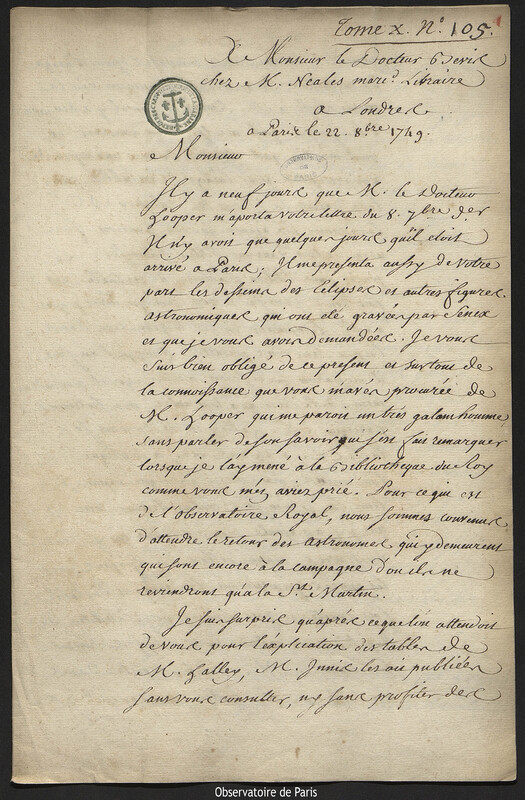 Tome x. N.° 105.
A Monsieur le Docteur Bevis
chez M. Neales marc.d Libraire
a Londres
a Paris le 22. 8bre 1749.
Monsieur
Il y a neuf jours que M. le Docteur
Cooper m'aporta votre lettre du 8. 7bre der
Il n'y avoit que quelques jours qu'il etoit
arrivé a Paris; Il me presenta aussy de votre
part les dessins des Eclipses et autres figures
astronomiques qui ont eté gravées par Senex
et que je vous avois demandées. Je vous
suis bien obligé de ce present et surtout de
la connoissance que vous m'avés procurée de
M. Cooper qui me paroit un très galant homme,
sans parler de son savoir qui s'est fait remarquer
lorsque je l'ay mené à la Bibliotheque du Roy
comme vous m'en aviez prié. Pour ce qui est
de l'observatoire Royal, nous sommes convenus
d'attendre le retour des astronomes qui y demeurent
qui sont encore à la campagne d'ou ils ne
reviendront qu'a la S.t Martin.
Je suis surpris qu'aprés ce que l'on attendoit
de vous pour l'explication des tables de
M. Halley, M. Innis les ait publiées
sans vous consulter, ny sans profiter des
Observatoire de Paris